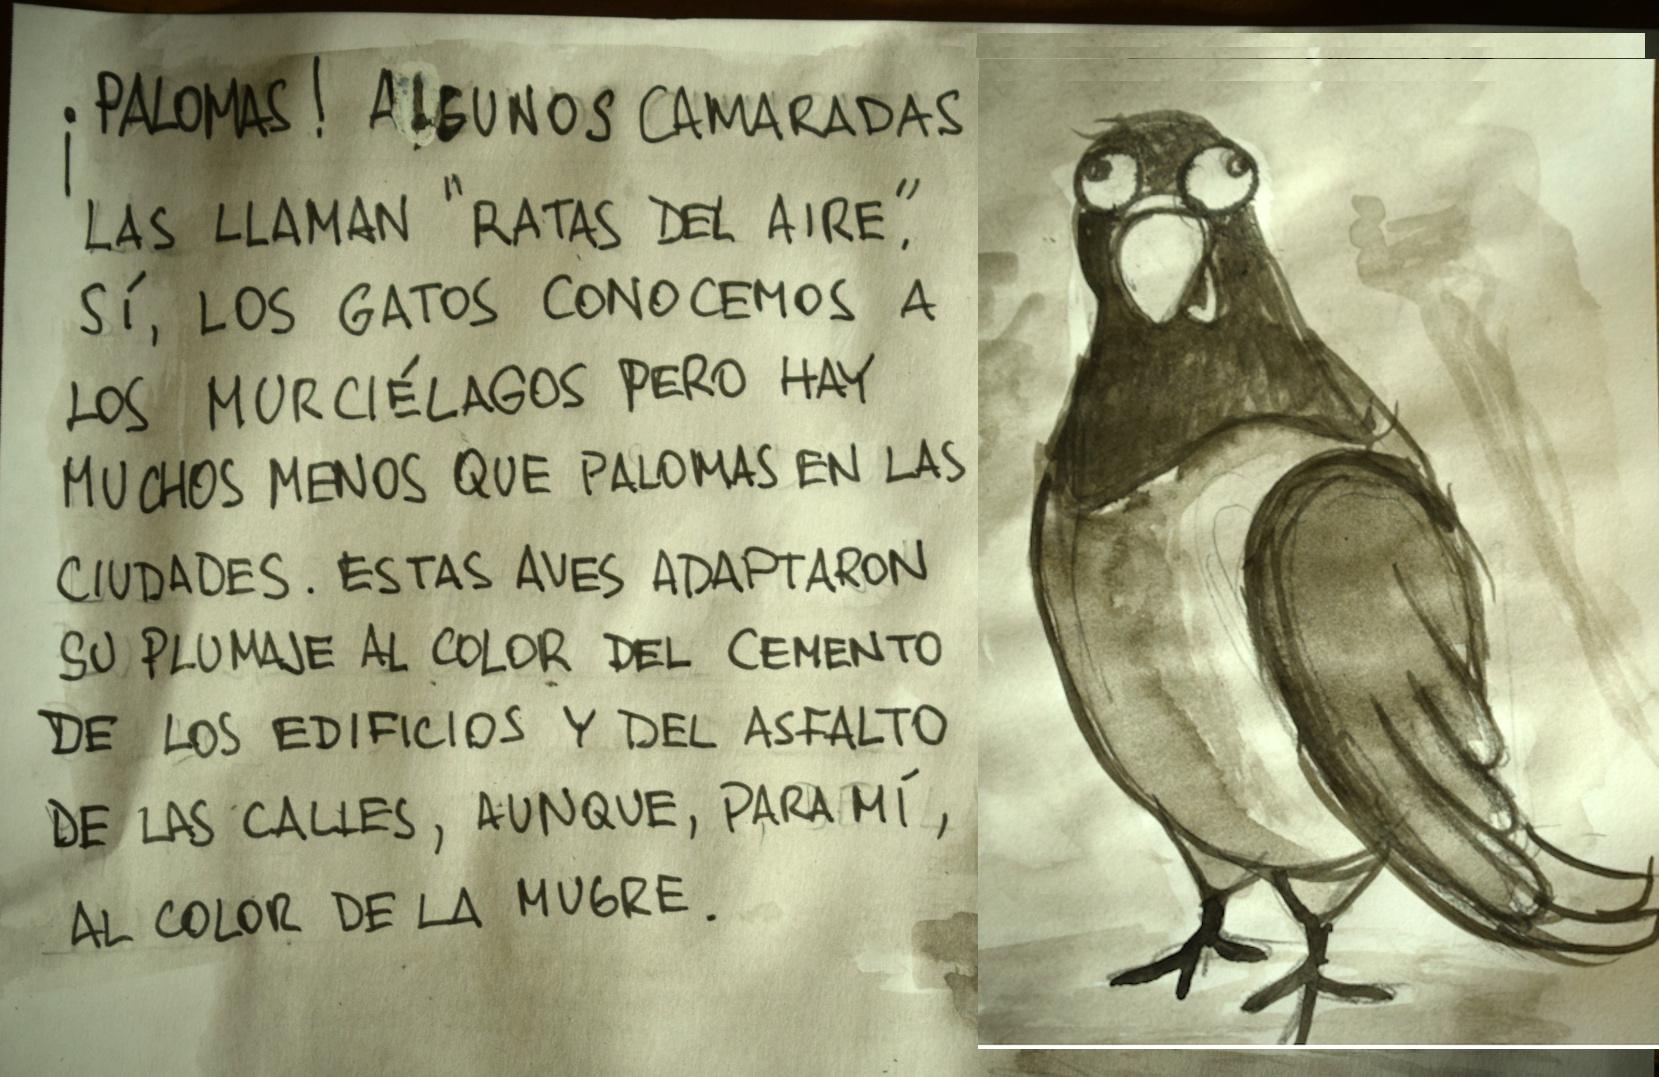 ¡PALOMAS! ALGUNOS CAMARADAS
LAS LLAMAN "RATAS DEL AIRE",
SÍ, LOS GATOS CONOCEMOS A
LOS MURCIÉLAGOS PERO HAY
MUCHOS MENOS QUE PALOMAS EN LAS
CIUDADES. ESTAS AVES ADAPTARON
SU PLUMAJE AL COLOR DEL CEMENTO
DE LOS EDIFICIOS Y DEL ASFALTO
DE LAS CALLES, AUNQUE, PARA MÍ,
AL COLOR DE LA MUGRE.